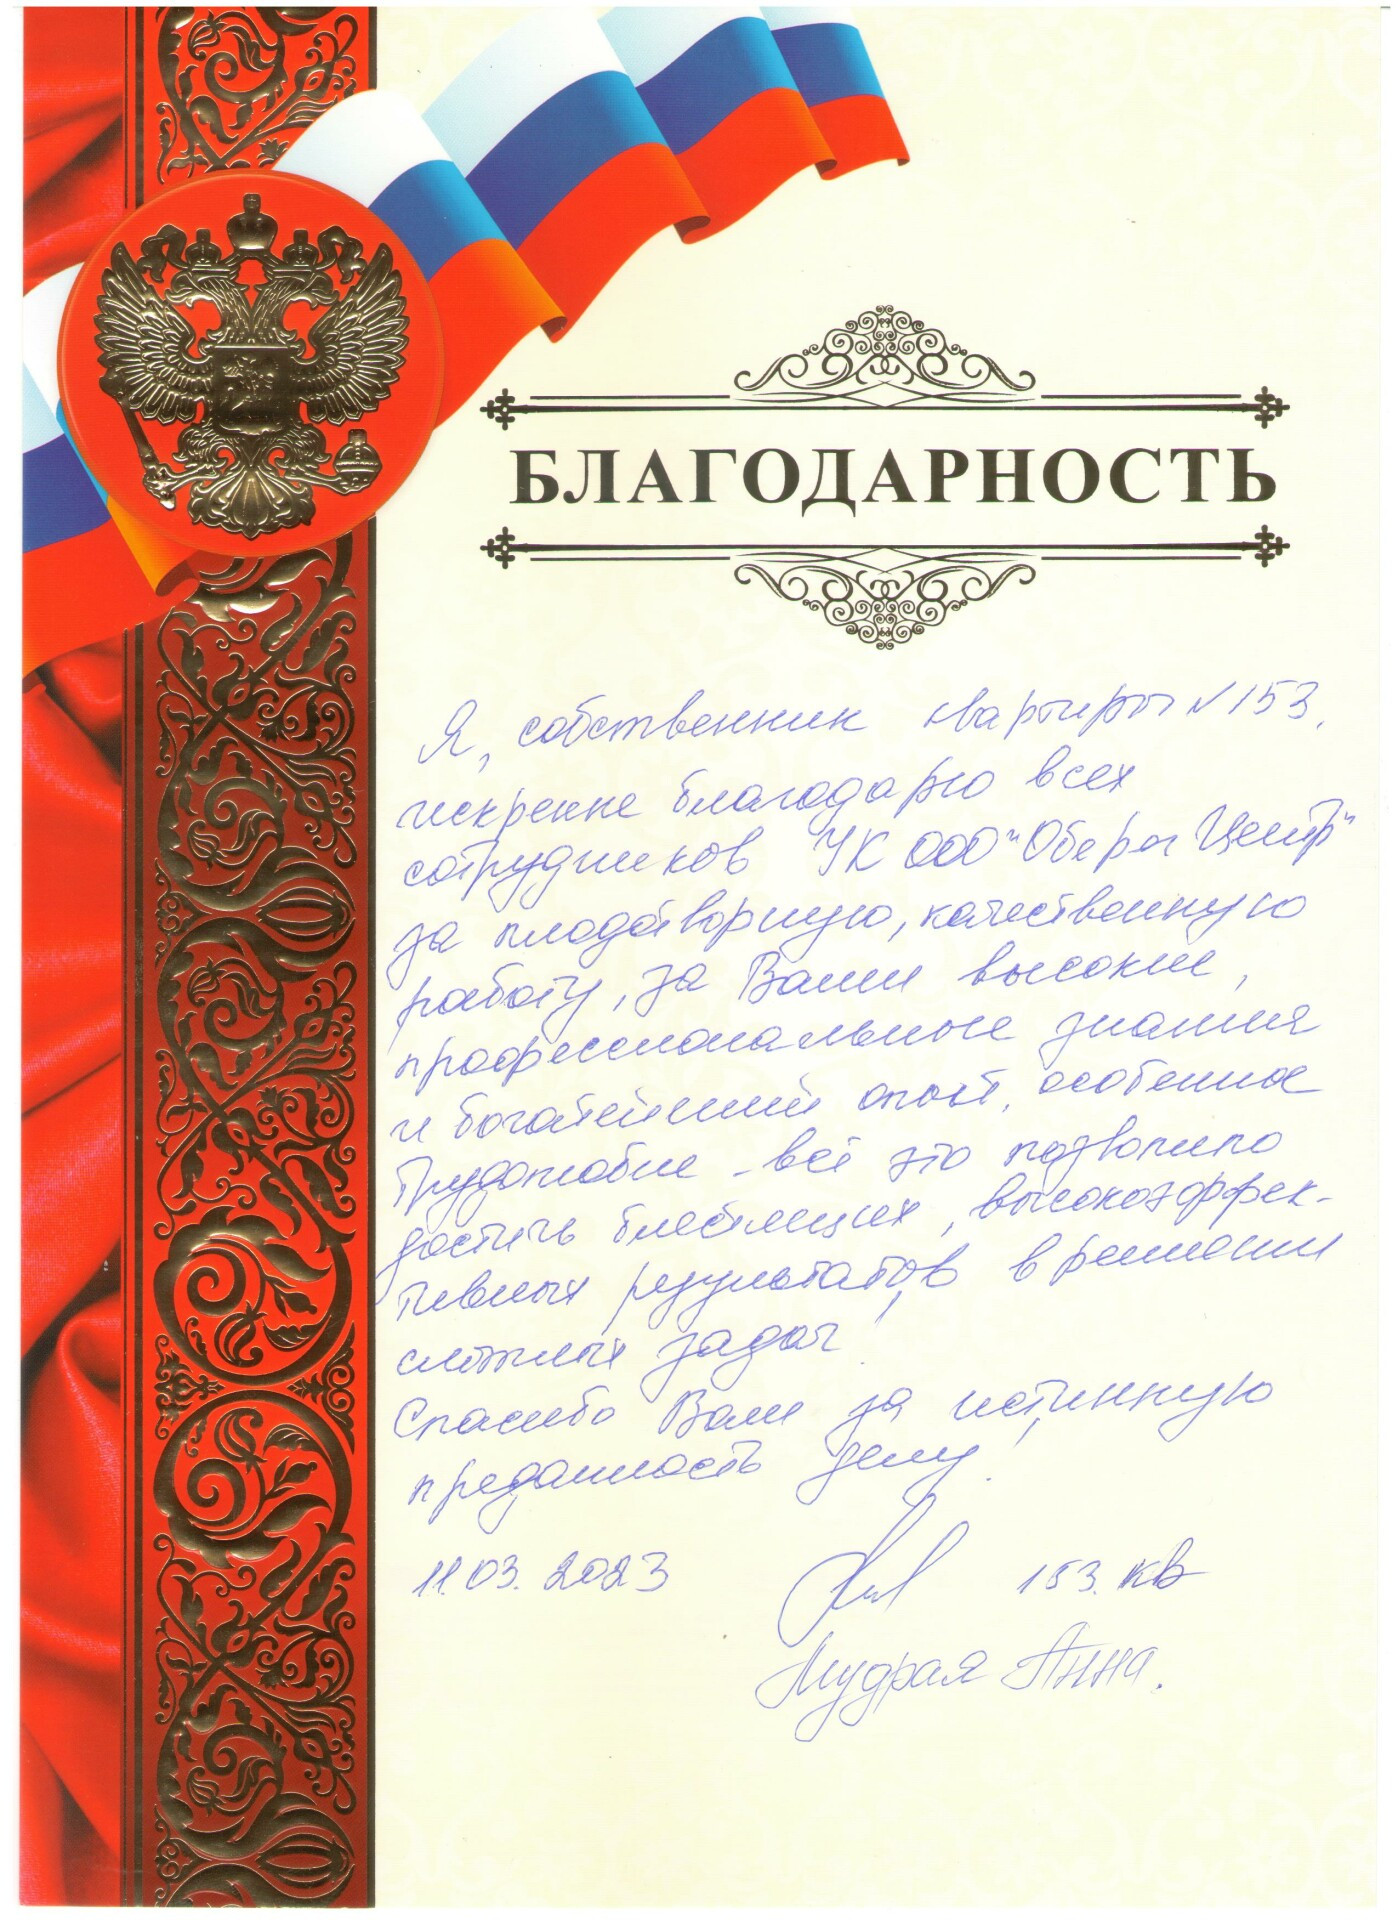 БЛАГОДАРНОСТЬ
Я, собственник квартиры №153,
искренне благодарю всех
сотрудников УК ООО "Оберег Центр"
за плодотворную, качественную
работу, за Ваши высокие,
профессиональные знания
и богатейший опыт, особенное
трудолюбие - всё это позволило
достичь блестящих, высокоэффек-
тивных результатов, в решении
сложных задач.
Спасибо Вам за истинную
преданность делу!
11.03.2023 153. кв
Мудрая Анна.